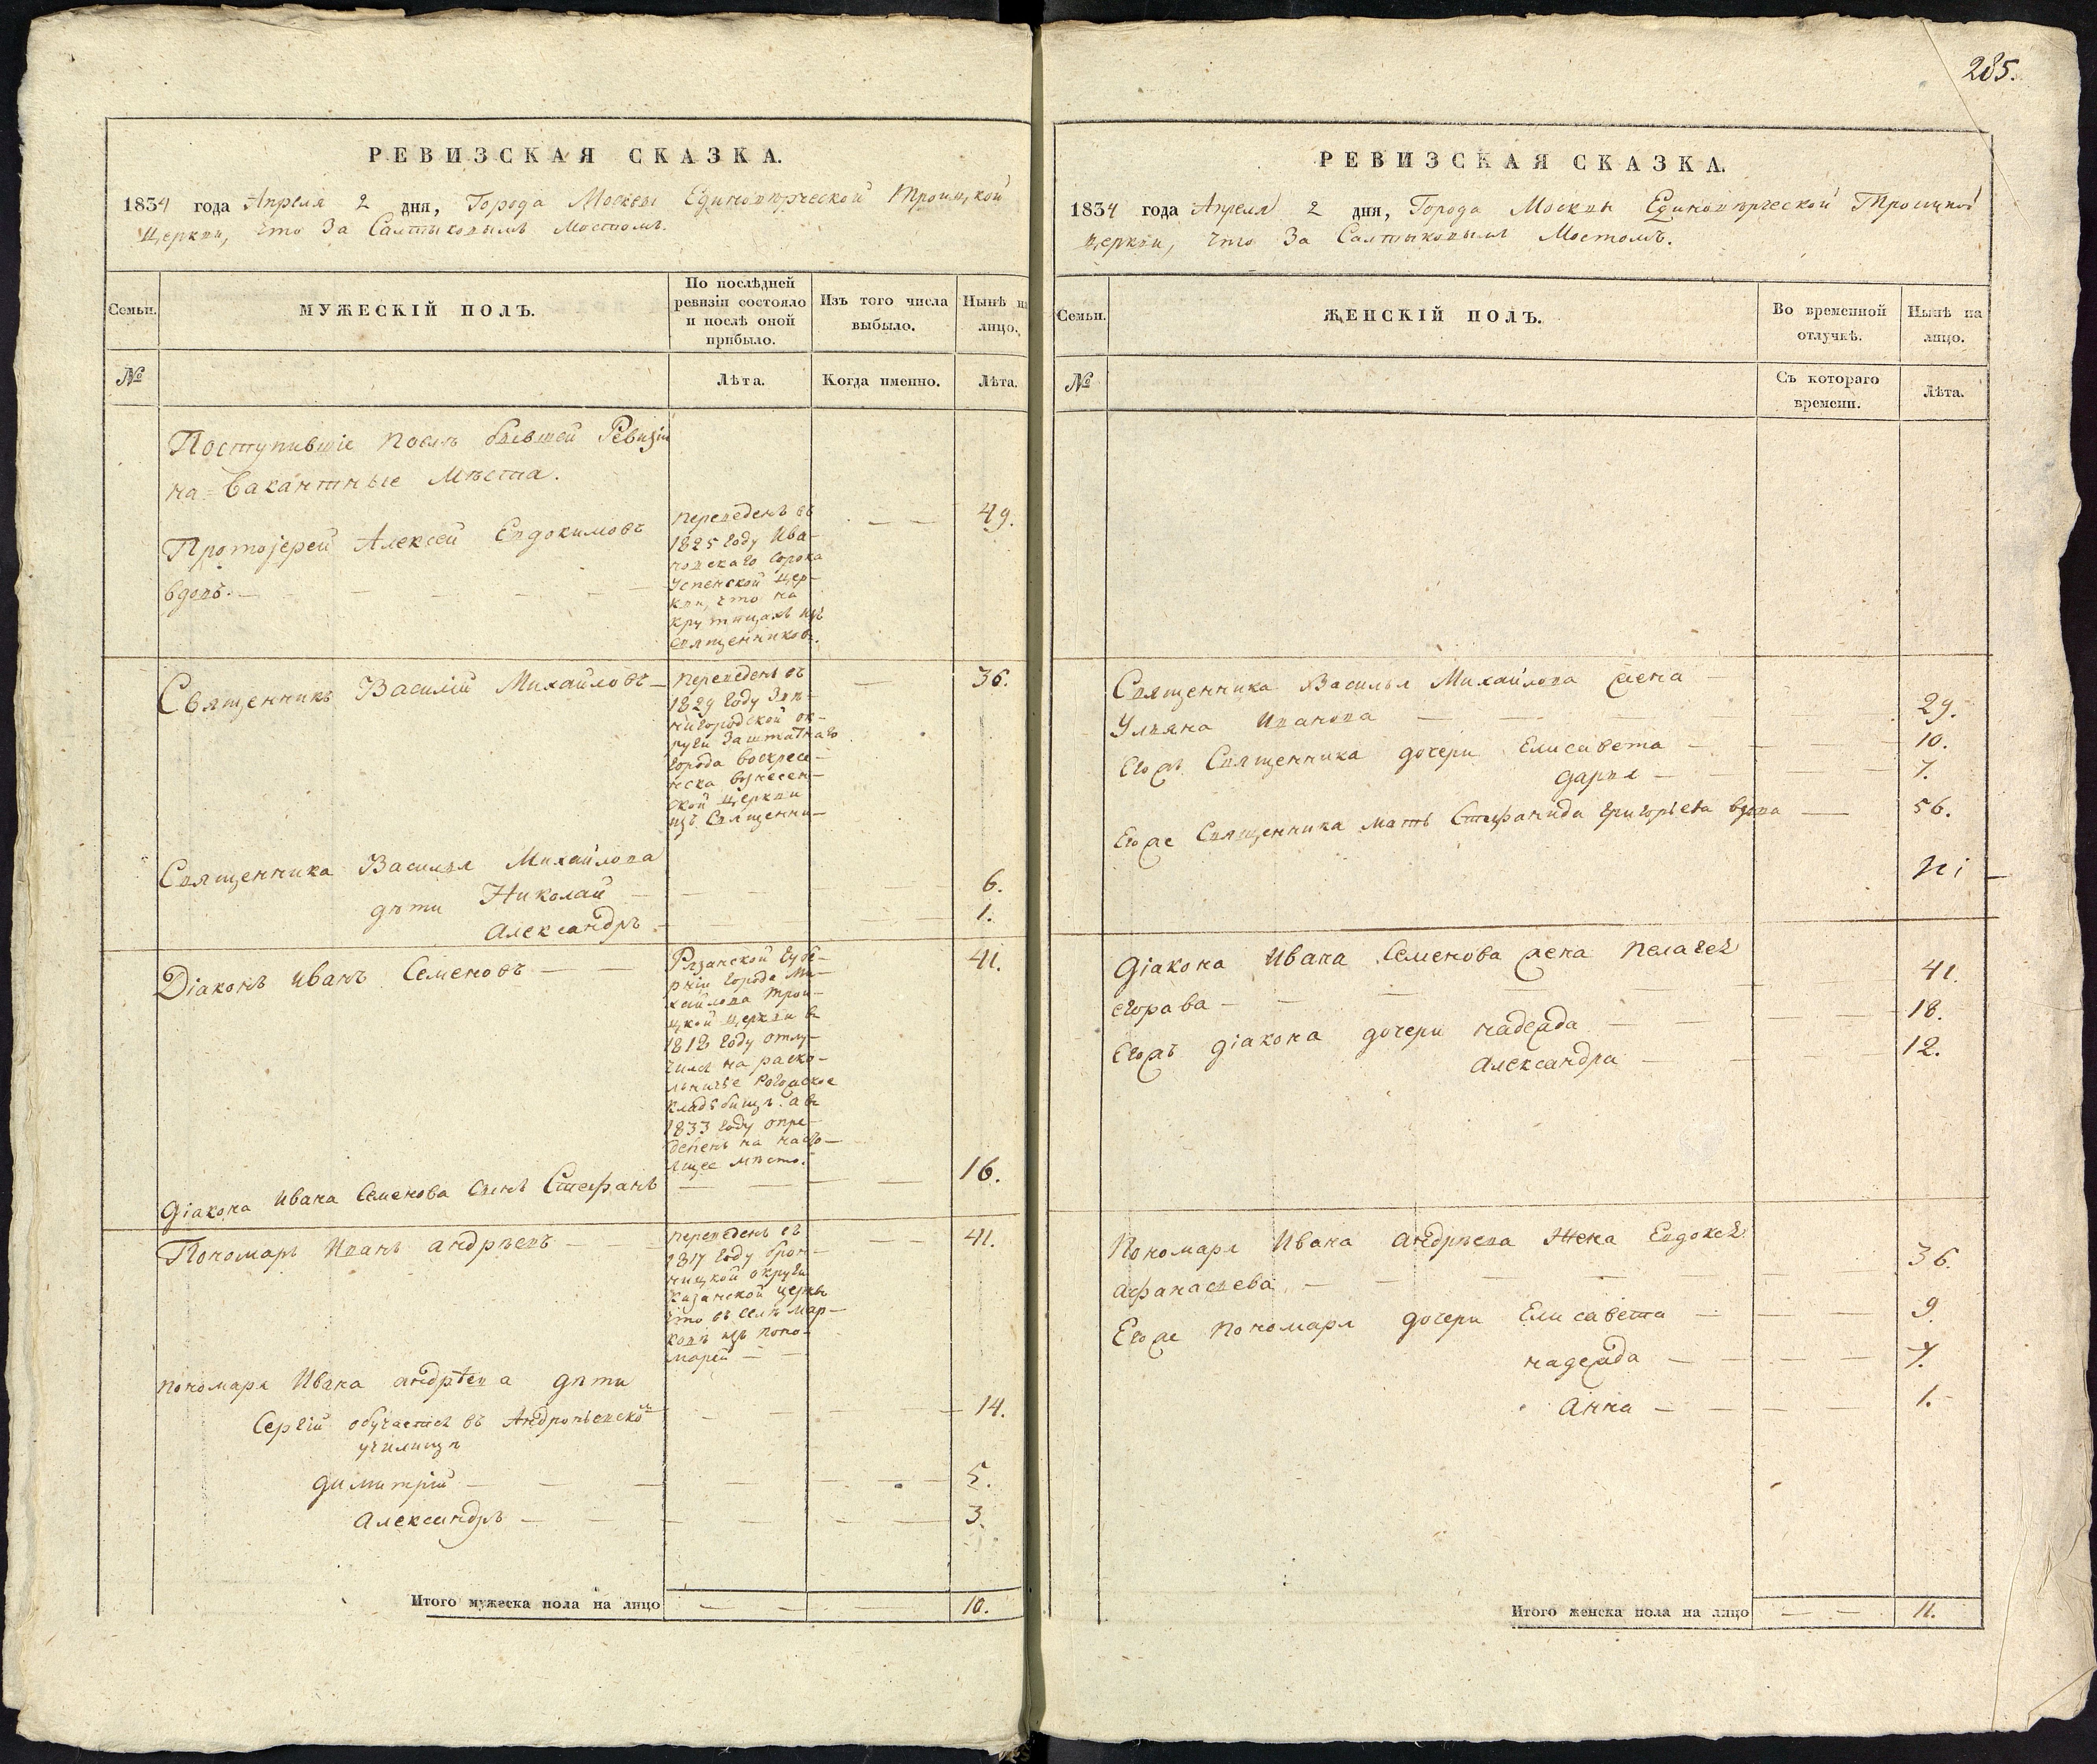 РЕВИЗСКАЯ СКАЗКА.
1834 года Апреля 2 дня, Города Москвы Единовѣрческой Троицкой
Церкви, что За Салтыковымъ Мостомъ.
Семьи.
МУЖЕСКІЙ ПОЛЪ.
По послѣдней
ревизіи состояло
и послѣ оной
прибыло.
Изъ того числа
выбыло.
Нынѣ на
лицо.
№
Лѣта.
Когда именно.
Лѣта.
Поступившіе послѣ бывшей Ревизіи
на вакантные Мѣста.
Протоіерей Алексѣй Евдокимовъ
вдовъ.
переведенъ въ
1825 году Ива-
новскаго Сорока
Успенской Цер-
кви, что на
крутицахъ изъ
Священниковъ.
49.
Священникъ Василій Михайловъ
переведенъ въ
1829 году Зве-
нигородской ок-
руги Заштатнаго
города Воскресе-
нска вознесен-
ской Церкви
изъ Священни-
36.
Священника Василья Михайлова
дѣти Николай
6.
Александръ
1.
Діаконъ Иванъ Семеновъ
Рязанской Губе-
рніи города Ми-
хайлова Трои-
цкой Церкви въ
1818 году отлу-
чился на раско-
льничье Рогожское
кладбище. а въ
1833 году опре-
деленъ на насто-
ящее мѣсто.
41.
Діакона Ивана Семенова сынъ Стефанъ
16.
Пономарь Иванъ Андрѣевъ
переведенъ въ
1817 году брон-
ницкой округи
Казанской церкв
что въ селѣ Мар-
ковѣ изъ поно-
марей
41.
пономаря Ивана Андрѣева дѣти
Сергій обучается въ Андроньевской
училищѣ
14.
Димитрій
5.
Александръ
3.
Итого мужеска пола на лицо
10.
285.
РЕВИЗСКАЯ СКАЗКА.
1834 года Апреля 2 дня, Города Москвы Единовѣрческой Троицкой
церкви, что За Салтыковымъ Мостомъ.
Семьи.
ЖЕНСКІЙ ПОЛЪ.
Во временной
отлучкѣ.
Нынѣ на
лицо.
№
Съ котораго
времени.
Лѣта.
Священника Василья Михайлова жена
Ульяна Иванова
29.
Егожъ Священника дочери Елисавета
10.
Дарья
7.
Егоже Священника мать Стефанида Григорьева вдова
56.
Діакона Ивана Семенова жена Пелагея
Егорова
41.
Егожъ Діакона дочери надежда
18.
Александра
12.
Пономаря Ивана Андрѣева Жена Евдокея
Афанасьева
36.
Егоже Пономаря дочери Елисавета
9.
надежда
7.
Анна
1.
Итого женска пола на лицо
11.